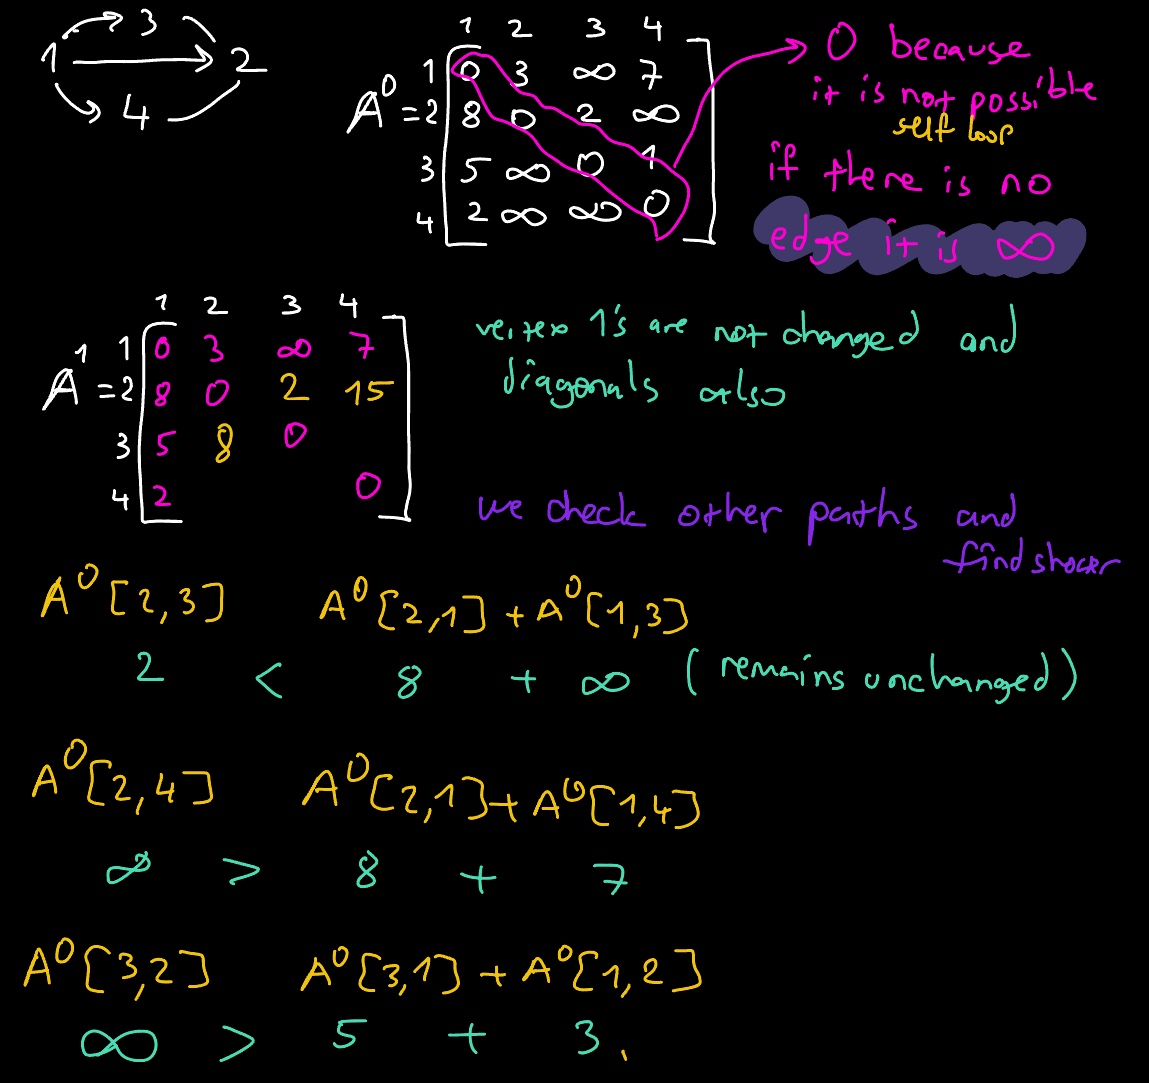 1 → 3
1 → 2
1 → 4
1 2 3 4
A⁰ =
1 0 3 ∞ 7
2 8 0 2 ∞
3 5 ∞ 0 1
4 2 ∞ ∞ 0
0 because
it is not possible
self loop
if there is no
edge it is ∞
1 2 3 4
A¹ =
1 0 3 ∞ 7
2 8 0 2 15
3 5 8 0
4 2 0
vertex 1's are not changed and
diagonals also
we check other paths and
find
A⁰[2,3] A⁰[2,1] + A⁰[1,3]
2 < 8 + ∞ (remains unchanged)
A⁰[2,4] A⁰[2,1] + A⁰[1,4]
∞ > 8 + 7
A⁰[3,2] A⁰[3,1] + A⁰[1,2]
∞ > 5 + 3.